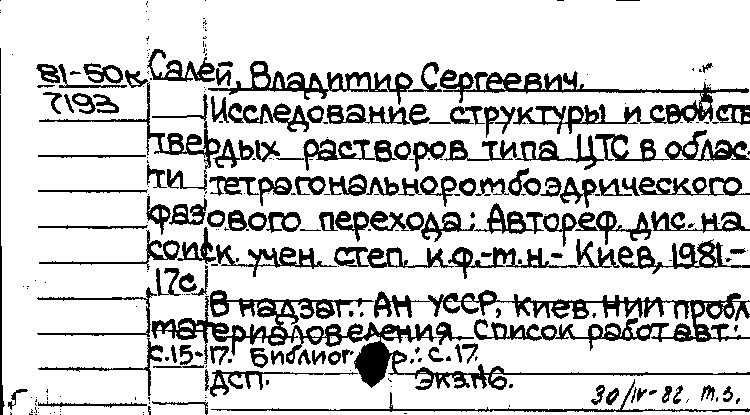 81-50к Салей, Владимир Сергеевич.
7193 Исследование структуры и свойств
твердых растворов типа ЦТС в облас-
ти тетрагональноромбоэдрического
фазового перехода: Автореф. дис. на
соиск. учен. степ. к.ф.-т.н.- Киев, 1981.-
17с.
В надзаг.: АН УССР, Киев. НИИ пробл
материаловедения. Список работ авт.:
с.15-17. Библиогр.: с.17.
ДСП. Экз.№6.
30/IV-82. т.з.